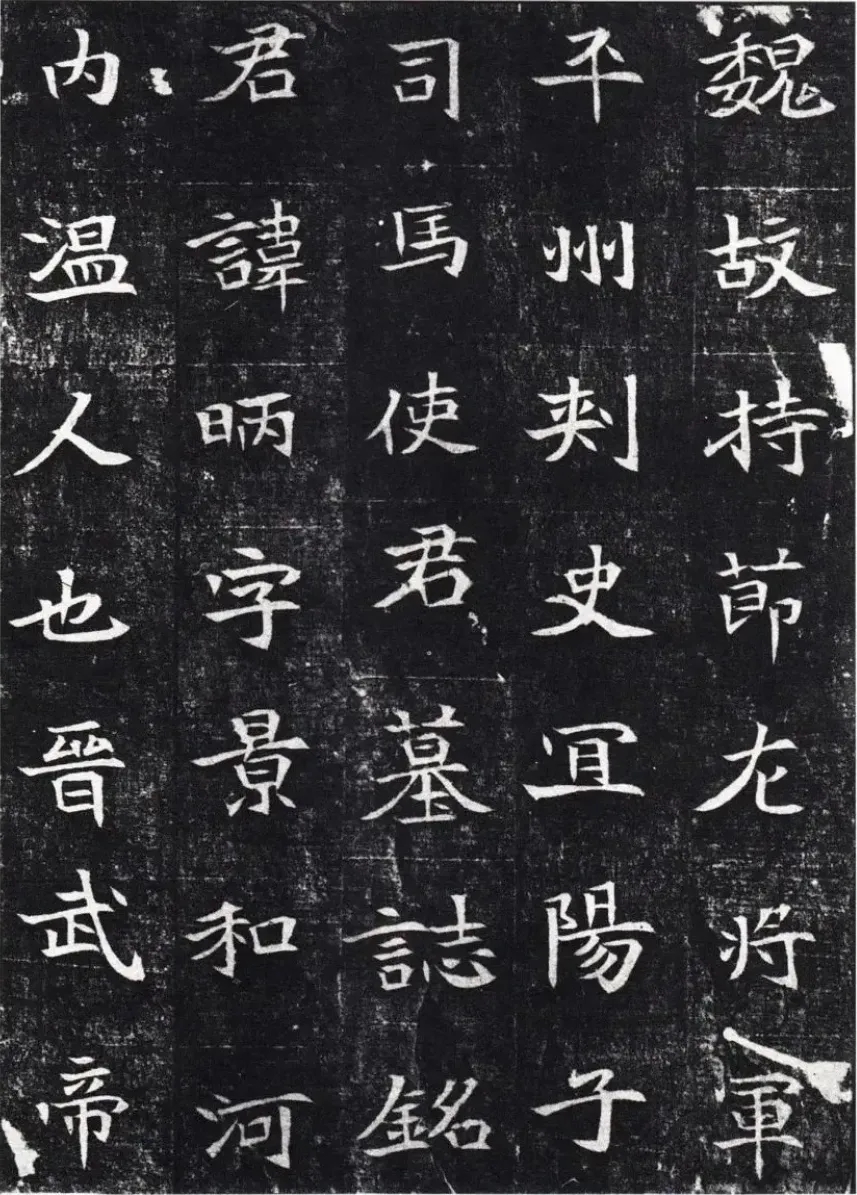 魏故持莭左将軍
平州刾史冝陽子
司馬使君墓誌銘
君諱昞字景和河
内温人也晉武帝